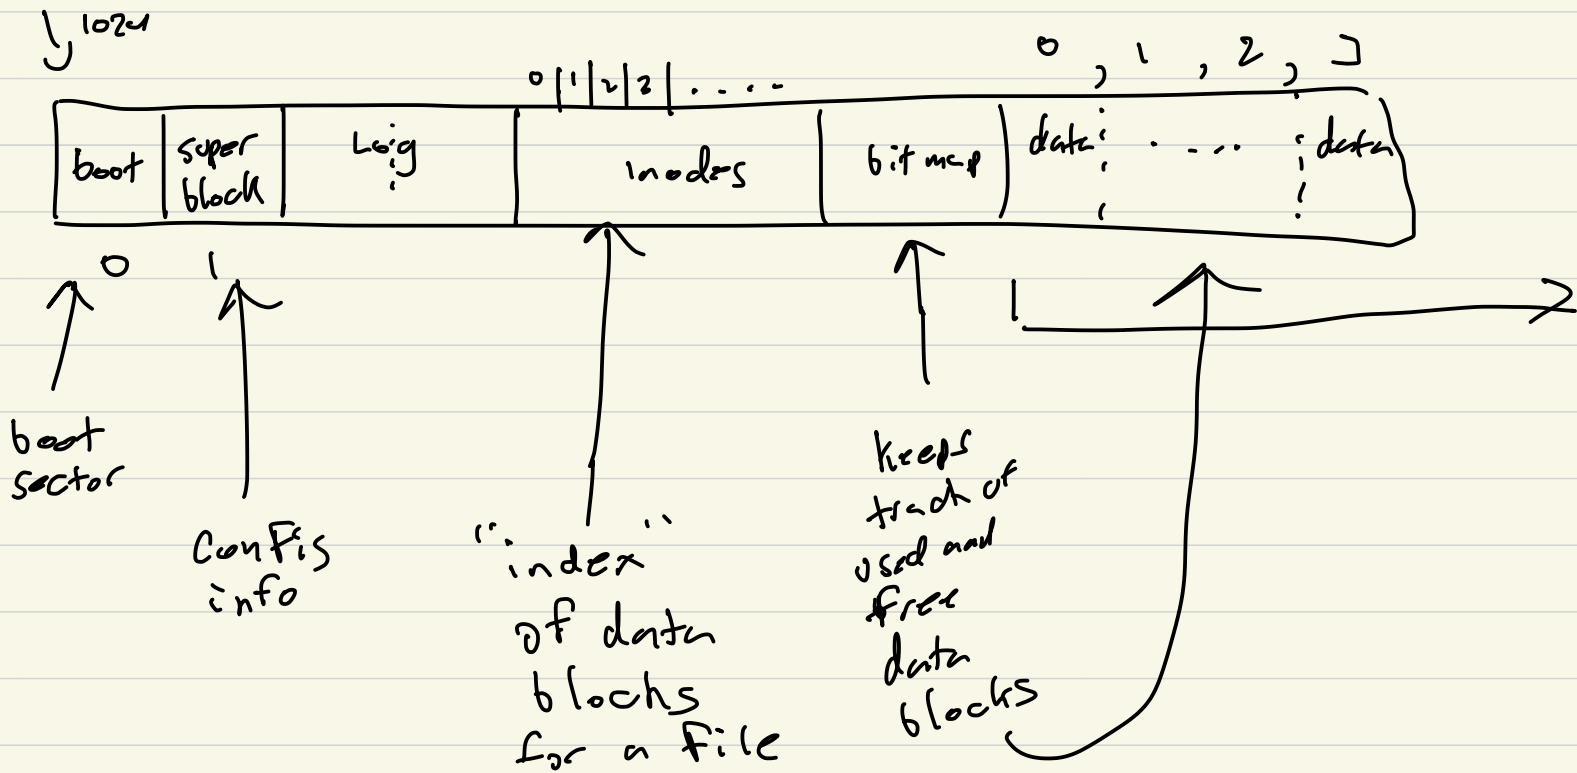 1024
0 | 1 | 2 | 3 | . . . .
0 , 1 , 2 , 3
boot
super
block
Log
inodes
bit map
data
. . . .
data
0
1
boot
sector
config
info
"index"
of data
blocks
for a file
keeps
track of
used and
free
data
blocks